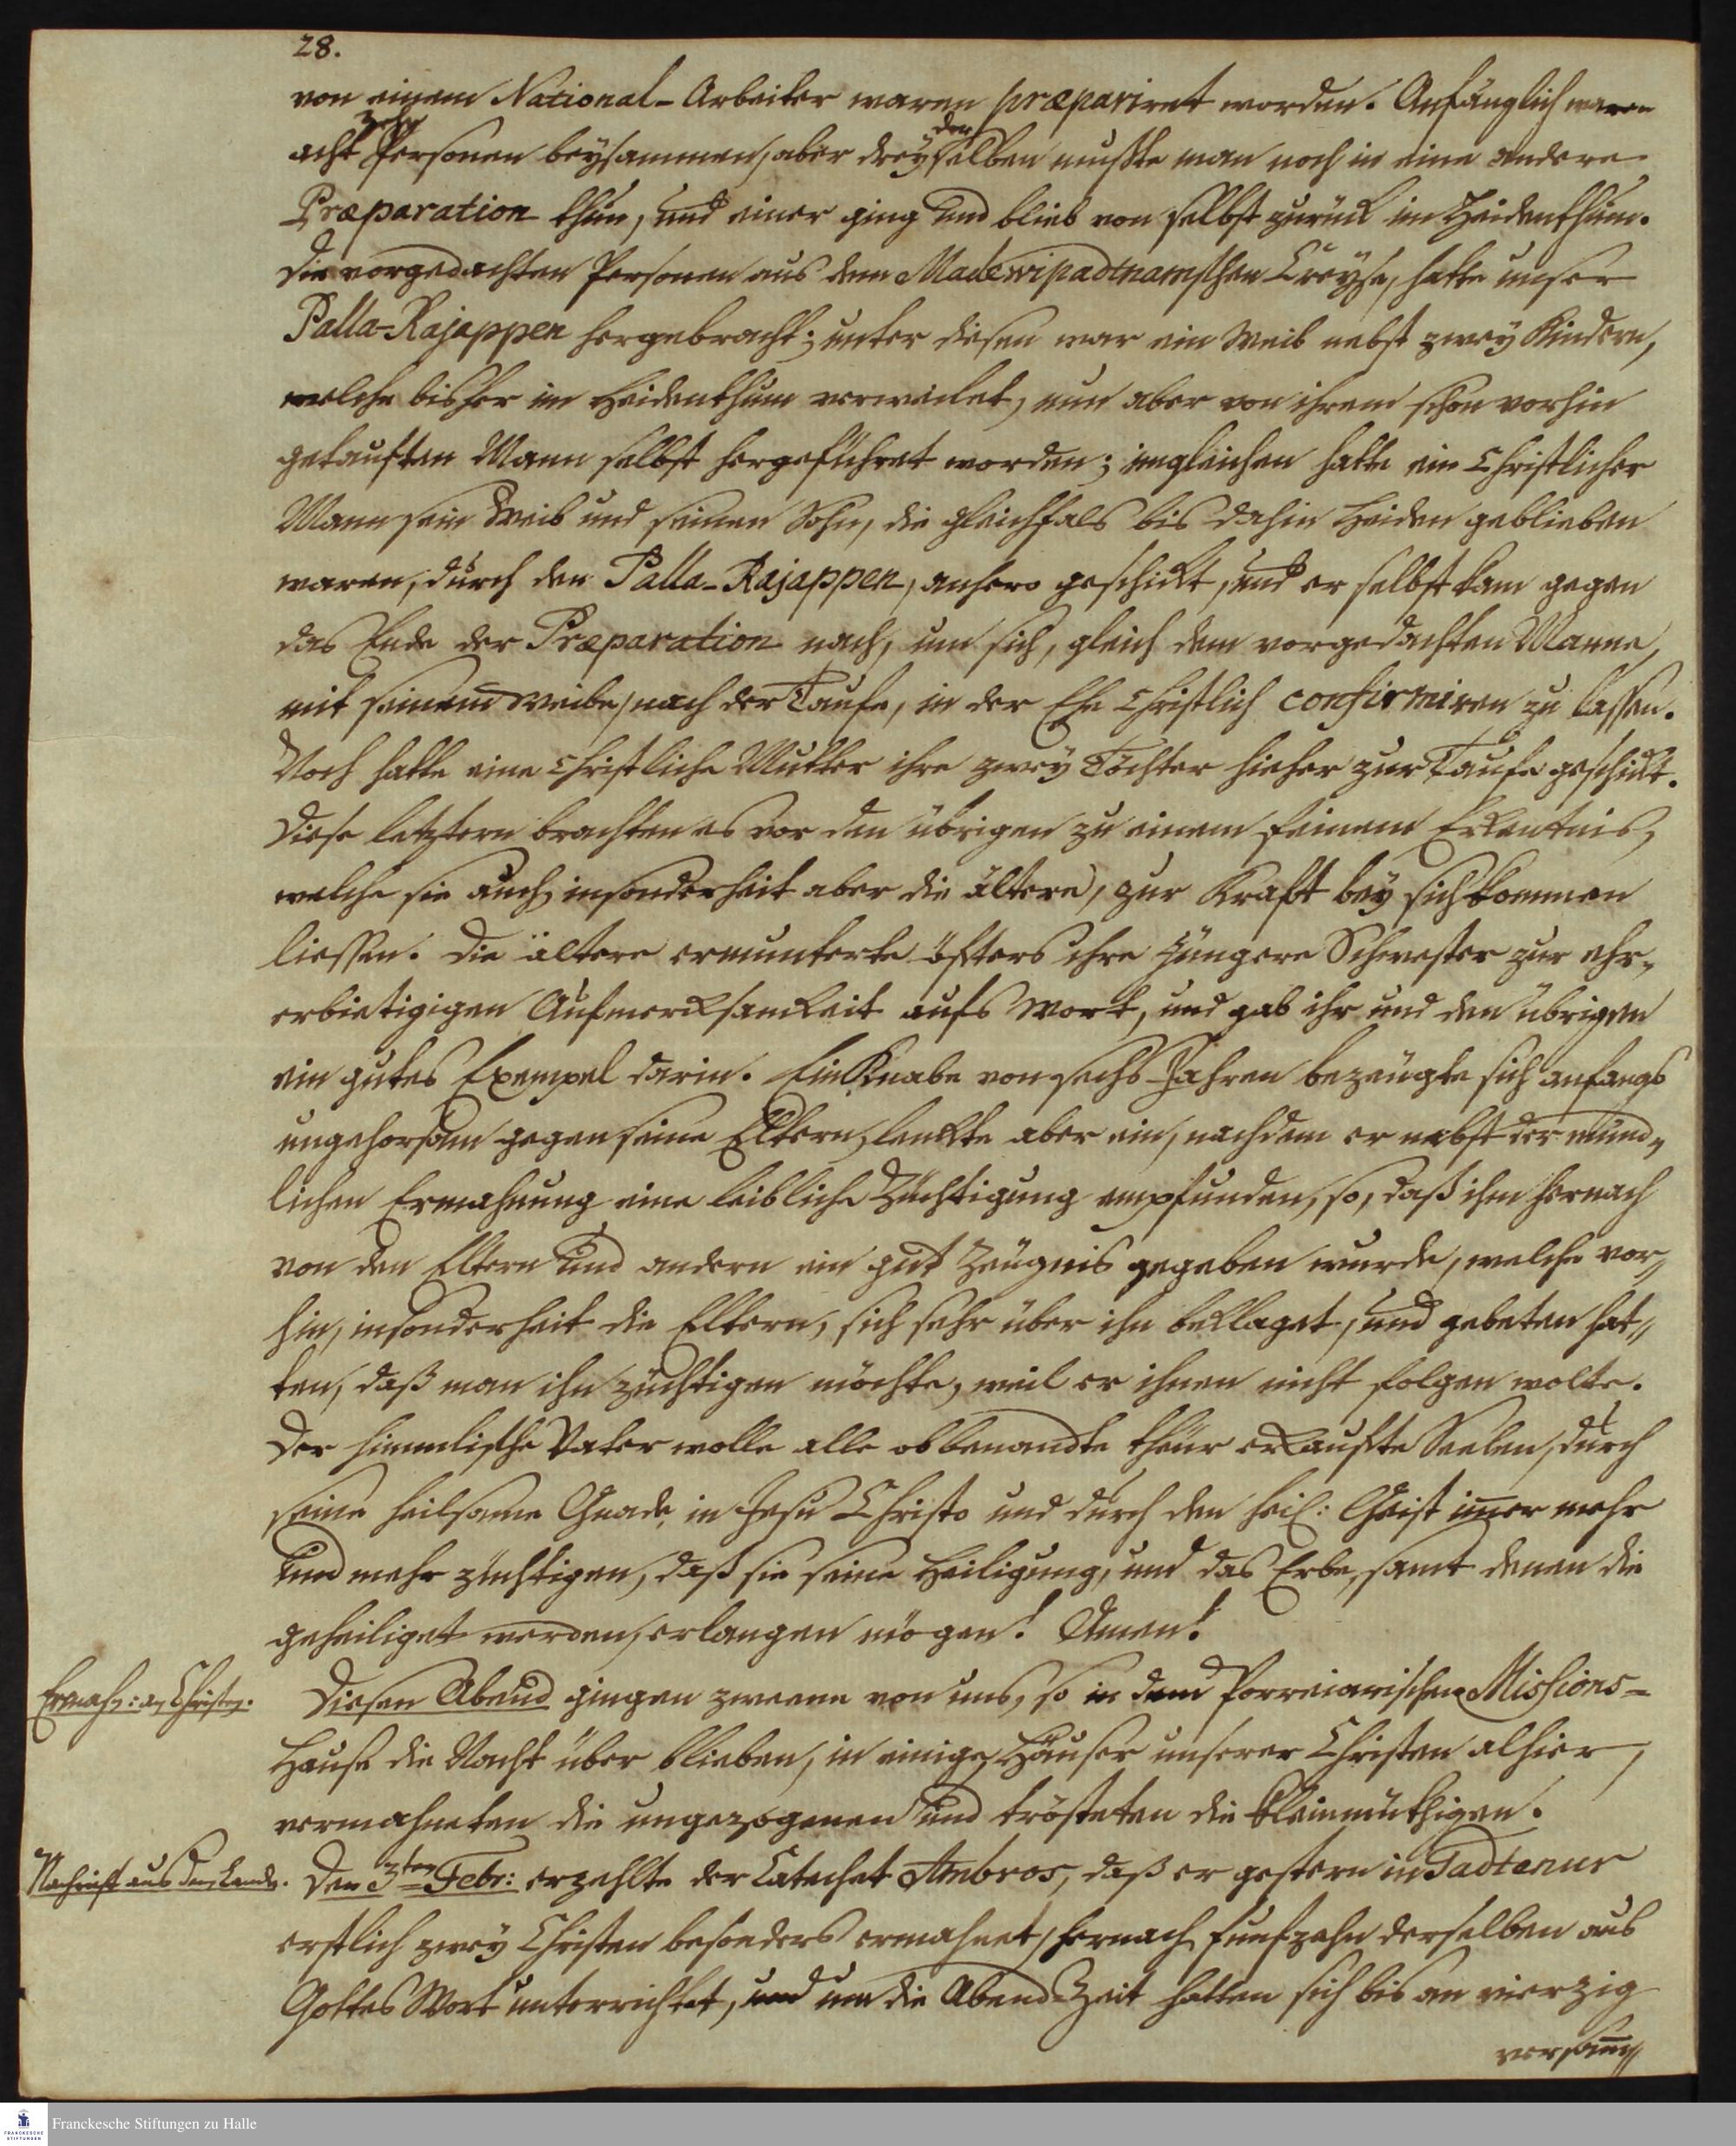 28.
von einem National-Arbeiter waren præpariret worden. Anfänglich waren
zehn
der
acht Personen beysammen, aber drey selben mußte man noch in eine andere
Præparation thun, und einer ging und blieb von selbst zurück im Heidenthum.
Die vorgedachten Personen aus dem Madewipadtnamschen Creyse, hatte unser
Palla-Rajappen hergebracht; unter diesen war ein Weib nebst zwey Kindern,
welche bisher im Heidenthum verweilet, nun aber von ihrem schon vorhin
getauften Mann selbst hergeführet worden; imgleichen hatte ein Christlicher
Mann sein Weib und seinen Sohn, die gleichfals bis dahin Heiden geblieben
waren, durch den Palla-Rajappen, anhero geschickt, und er selbst kam gegen
das Ende der Præparation nach, um sich, gleich dem vorgedachten Manne,
mit seinem Weibe, nach der Taufe, in der Ehe Christlich confirmiren zu lassen.
Noch hatte eine Christliche Mutter ihre zwey Töchter hieher zur Taufe geschickt.
Diese letztern brachten es vor den übrigen zu einem feinem Erkentnis,
welche sie auch, insonderheit aber die ältere, zur Kraft bey sich kommen
liessen. Die ältere ermunterte öffters ihre jüngere Schwester zur ehr-
erbietigigen Aufmercksamkeit aufs Wort, und gab ihr und den übrigen
ein gutes Exempel darin. Ein Knabe von sechs Jahren bezeugte sich anfangs
ungehorsam gegen seine Eltern, lenckte aber ein, nachdem er nebst der münd-
lichen Ermahnung eine leibliche Züchtigung empfunden, so, daß ihm hernach
von den Eltern und andern ein gut Zeugnis gegeben wurde, welche vor-
hin, insonderheit die Eltern, sich sehr über ihn beklaget, und gebeten hat-
ten, daß man ihn züchtigen möchte, weil er ihnen nicht folgen wolte.
Der himmlische Vater wolle alle obbenandte theur erkaufte Seelen, durch
seine heilsame Gnade in Jesu Christo und durch den heil: Geist im̅er mehr
und mehr züchtigen, daß sie seine Heiligung, und das Erbe, samt denen die
geheiliget werden, erlangen mögen! Amen!
Ermahn: an Christen.
Diesen Abend gingen zweene von uns, so in dem Porreiarischen Missions-
Hause die Nacht über blieben, in einige Häuser unserer Christen alhier,
vermahneten die ungezogenen und trösteten die kleinmüthigen.
Nachricht aus dem Lande.
Den 3ten Febr: erzehlte der Catechet Ambros, daß er gestern in Tadtenur
erstlich zwey Christen besonders ermahnet, hernach funfzehn derselben aus
Gottes Wort unterrichtet, und um die Abend-Zeit hatten sich bis an vierzig
versam̅-
Franckesche Stiftungen zu Halle
FRANCKESCHE
STIFTUNGEN